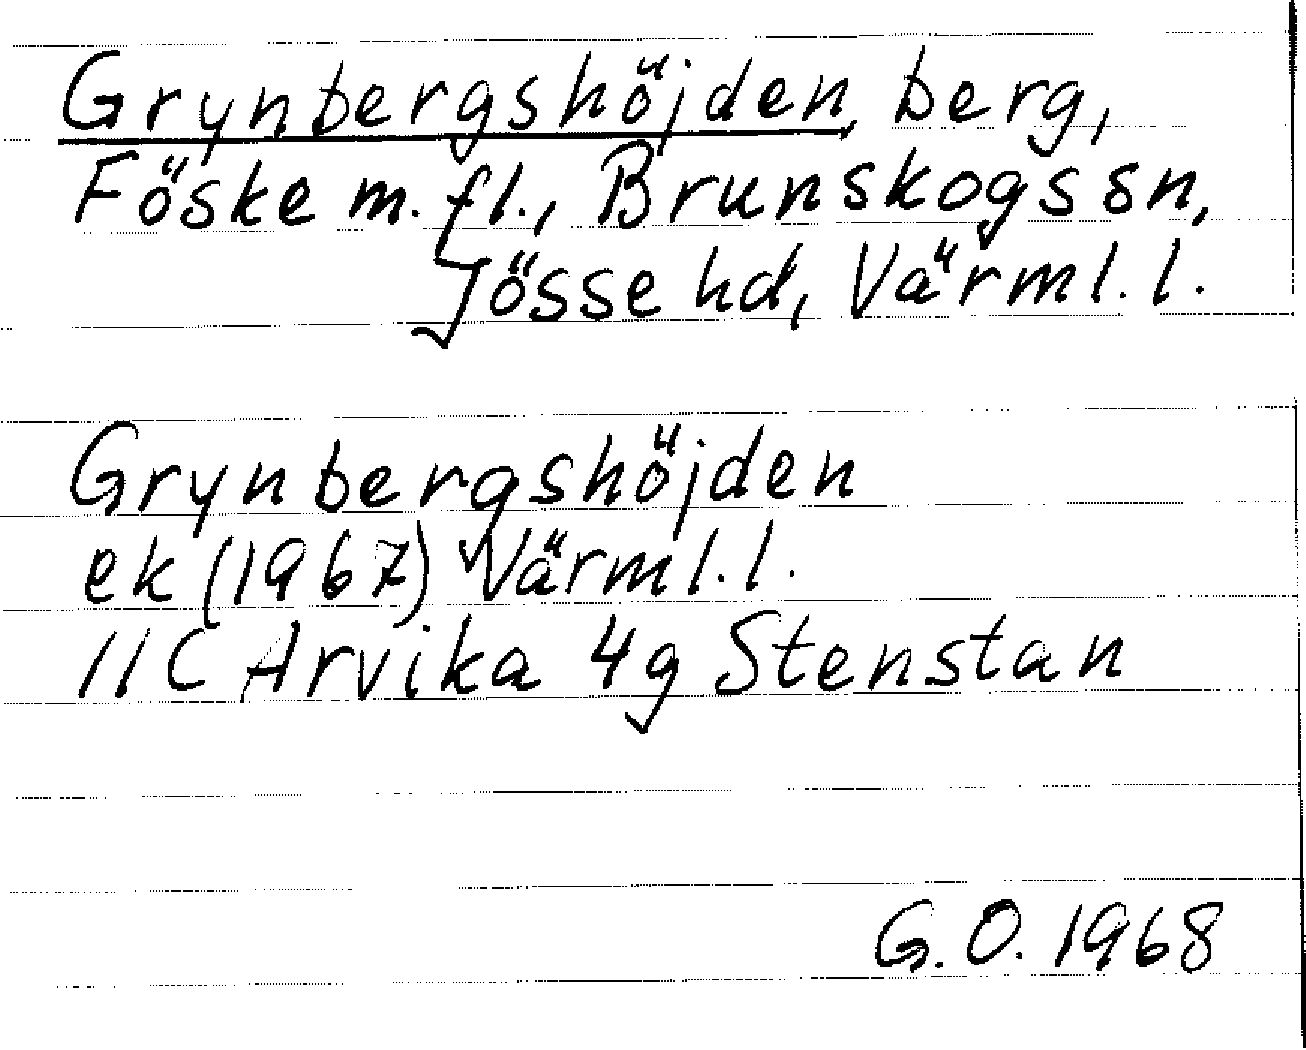 Grynbergshöjden, berg,
Föske m.fl., Brunskogs sn,
Jösse hd, Värml. l.
Grynbergshöjden
ek (1967) Värml. l.
11C Arvika 4g Stenstan
G.O. 1968